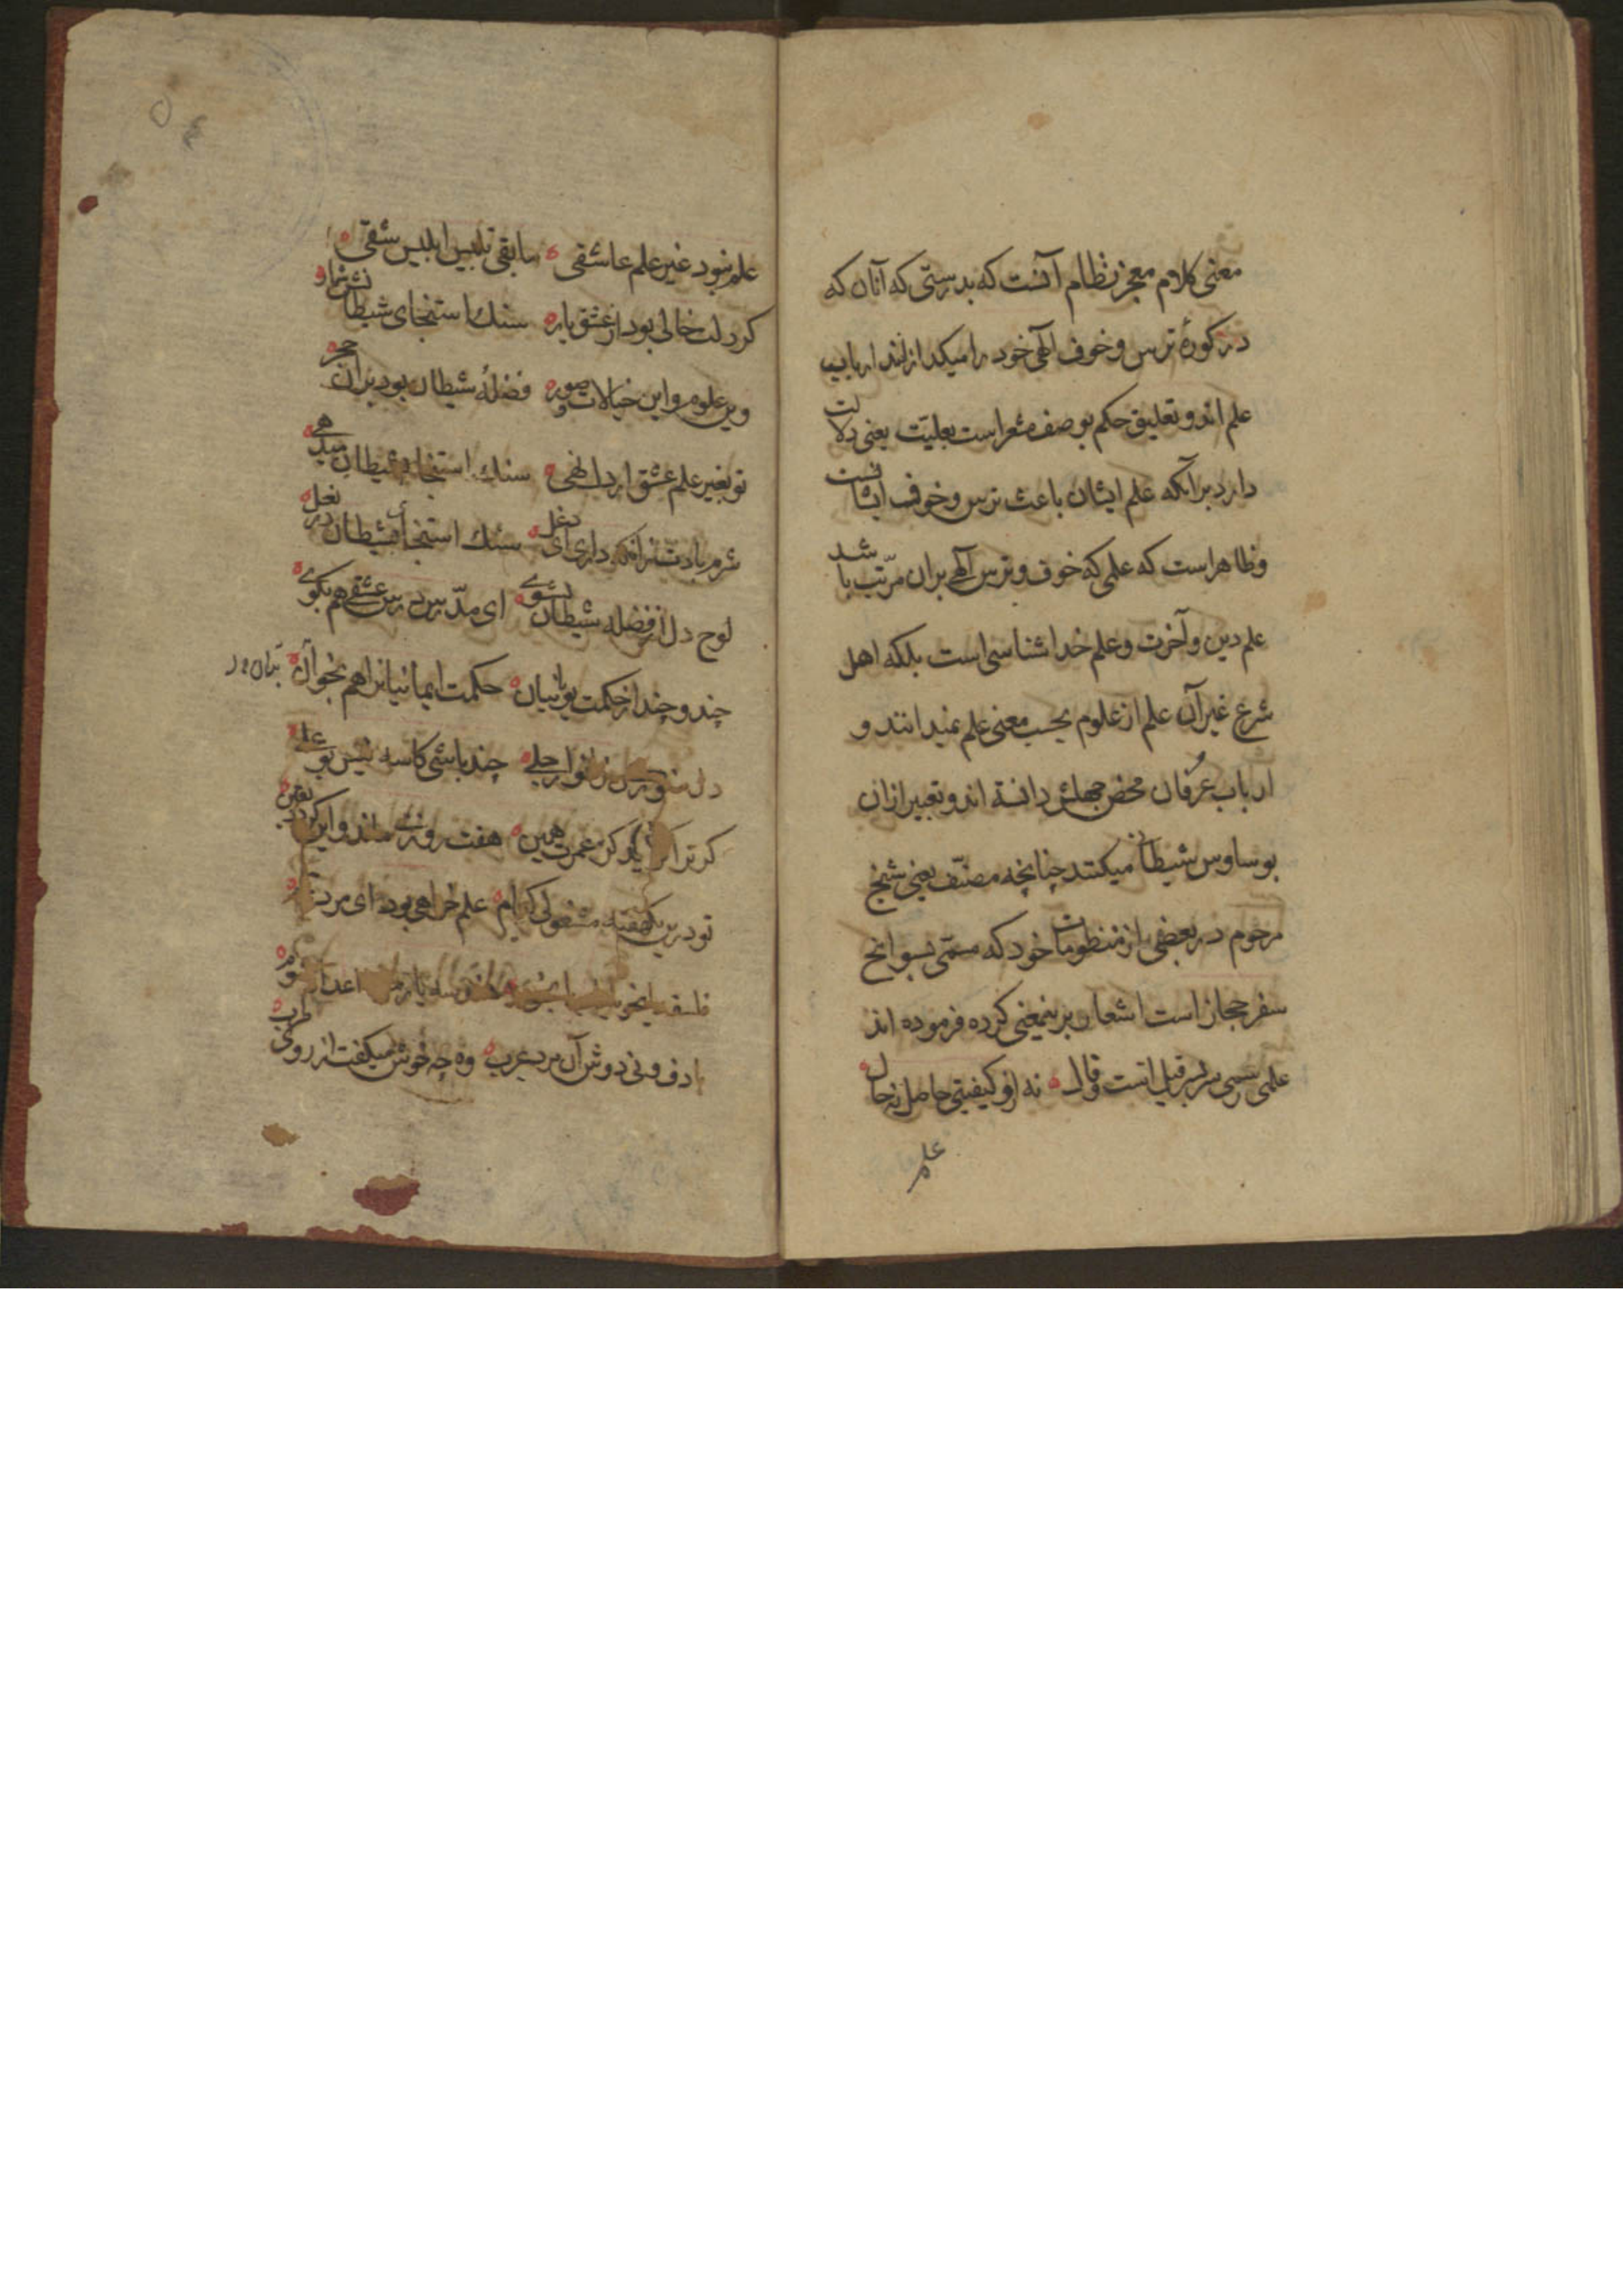 معنی کلام معجز نظام آنست که بدرستی که آنان که
در کورهٔ ترس و خوف الهی خود را میکدازانند ارباب
علم اند و تعلیق حکم بوصف مشعر است بعلیّت یعنی دلالت
دارد برآنکه علم ایشان باعث ترس و خوف ایشانست
و ظاهر است که علمی که خوف و ترس الهی بران مرتّب باشد
علم دین و آخرت و علم خدا شناسی است بلکه اهل
شرع غیر آن علم از علوم بحسب معنی علم نمیدانند و
ارباب عرفان محض جهلش دانسته اند و تعبیر ازان
بوساوس شیطانی میکنند چنانچه مصنّف یعنی شیخ
مرحوم در بعضی از منظومات خود که مسمّی بسوانح
سفر حجاز است اشعار برینمعنی کرده فرموده اند
علم رسمی سر بسر قیل است و قال نه ازو کیفیتی حاصل نه حال
علم
علم نبود غیر علم عاشقی مابقی تلبیس ابلیس شقی
کر دلت خالی بود از عشق یار سنك استنجای شیطانش شمار
وین علوم و این خیالات و صور فضلهٔ شیطان بود بران حجر
تو بغیر علم عشق ار دل نهی سنك استنجا بشیطان میدهی
شرم بادت زانکه داری ای دغل سنك استنجای شیطان در بغل
لوح دل از فضله شیطان بشوی ای مدّرس درس عشقی هم بکوی
چند و چند از حکمت یونانیان حکمت ایمانیانرا هم بخوان
دل منور کن بانوار جلی چند باشی کاسه لیس بو علی
هفت روزی ماند و این کردد یقین
تو درین یکهفته مشغول کدام علم خواهی بود ای مرد
با دف و نی دوش آن مرد عرب وه چه خوش میکفت از روی طرب